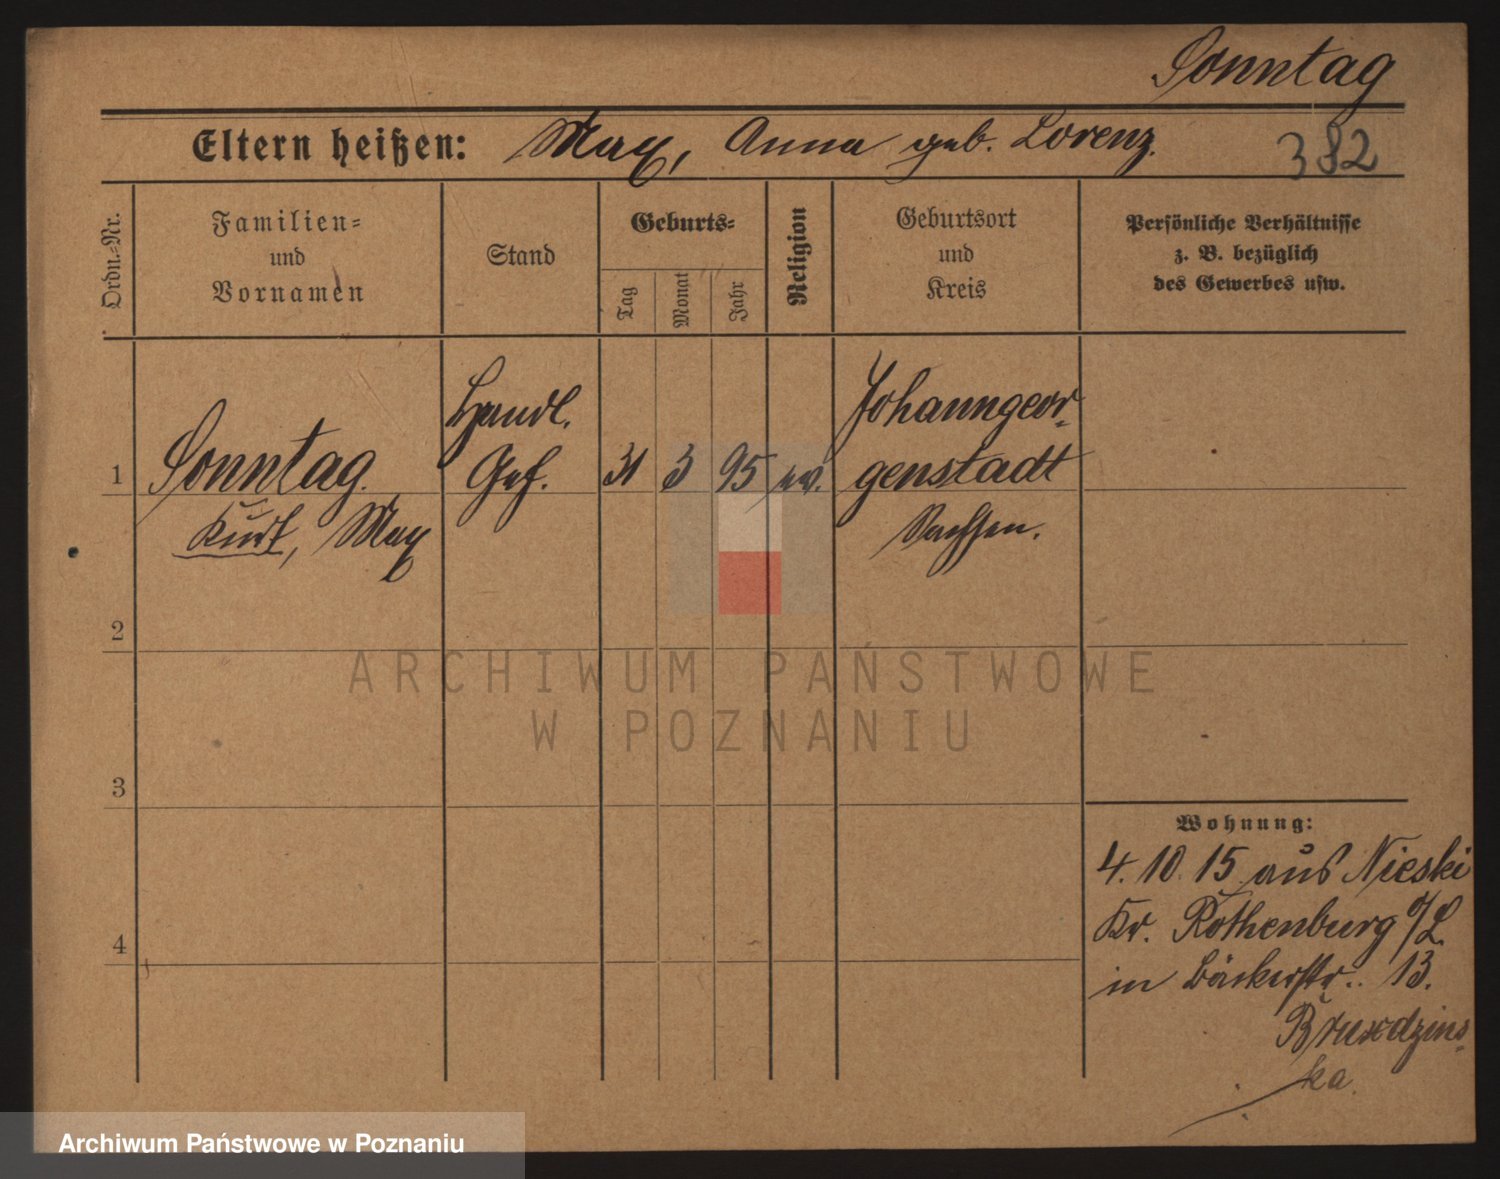 Sonntag
Eltern heißen: Max, Anna geb. Lorenz.
382
Ordn.=Nr.
Familien=
und
Vornamen
Stand
Geburts=
Tag
Monat
Jahr
Religion
Geburtsort
und
Kreis
Persönliche Verhältnisse
z. B. bezüglich
des Gewerbes usw.
1
Sonntag.
Kurt, Max
Handl.
Gef.
31
3
95
ev.
Johanngeor-
genstadt
Sachsen.
2
3
4
Wohnung:
4. 10. 15 aus Nieski
Kr. Rothenburg o/L.
in Bäckerstr. 13.
ka.
ARCHIWUM PAŃSTWOWE
W POZNANIU
Archiwum Państwowe w Poznaniu